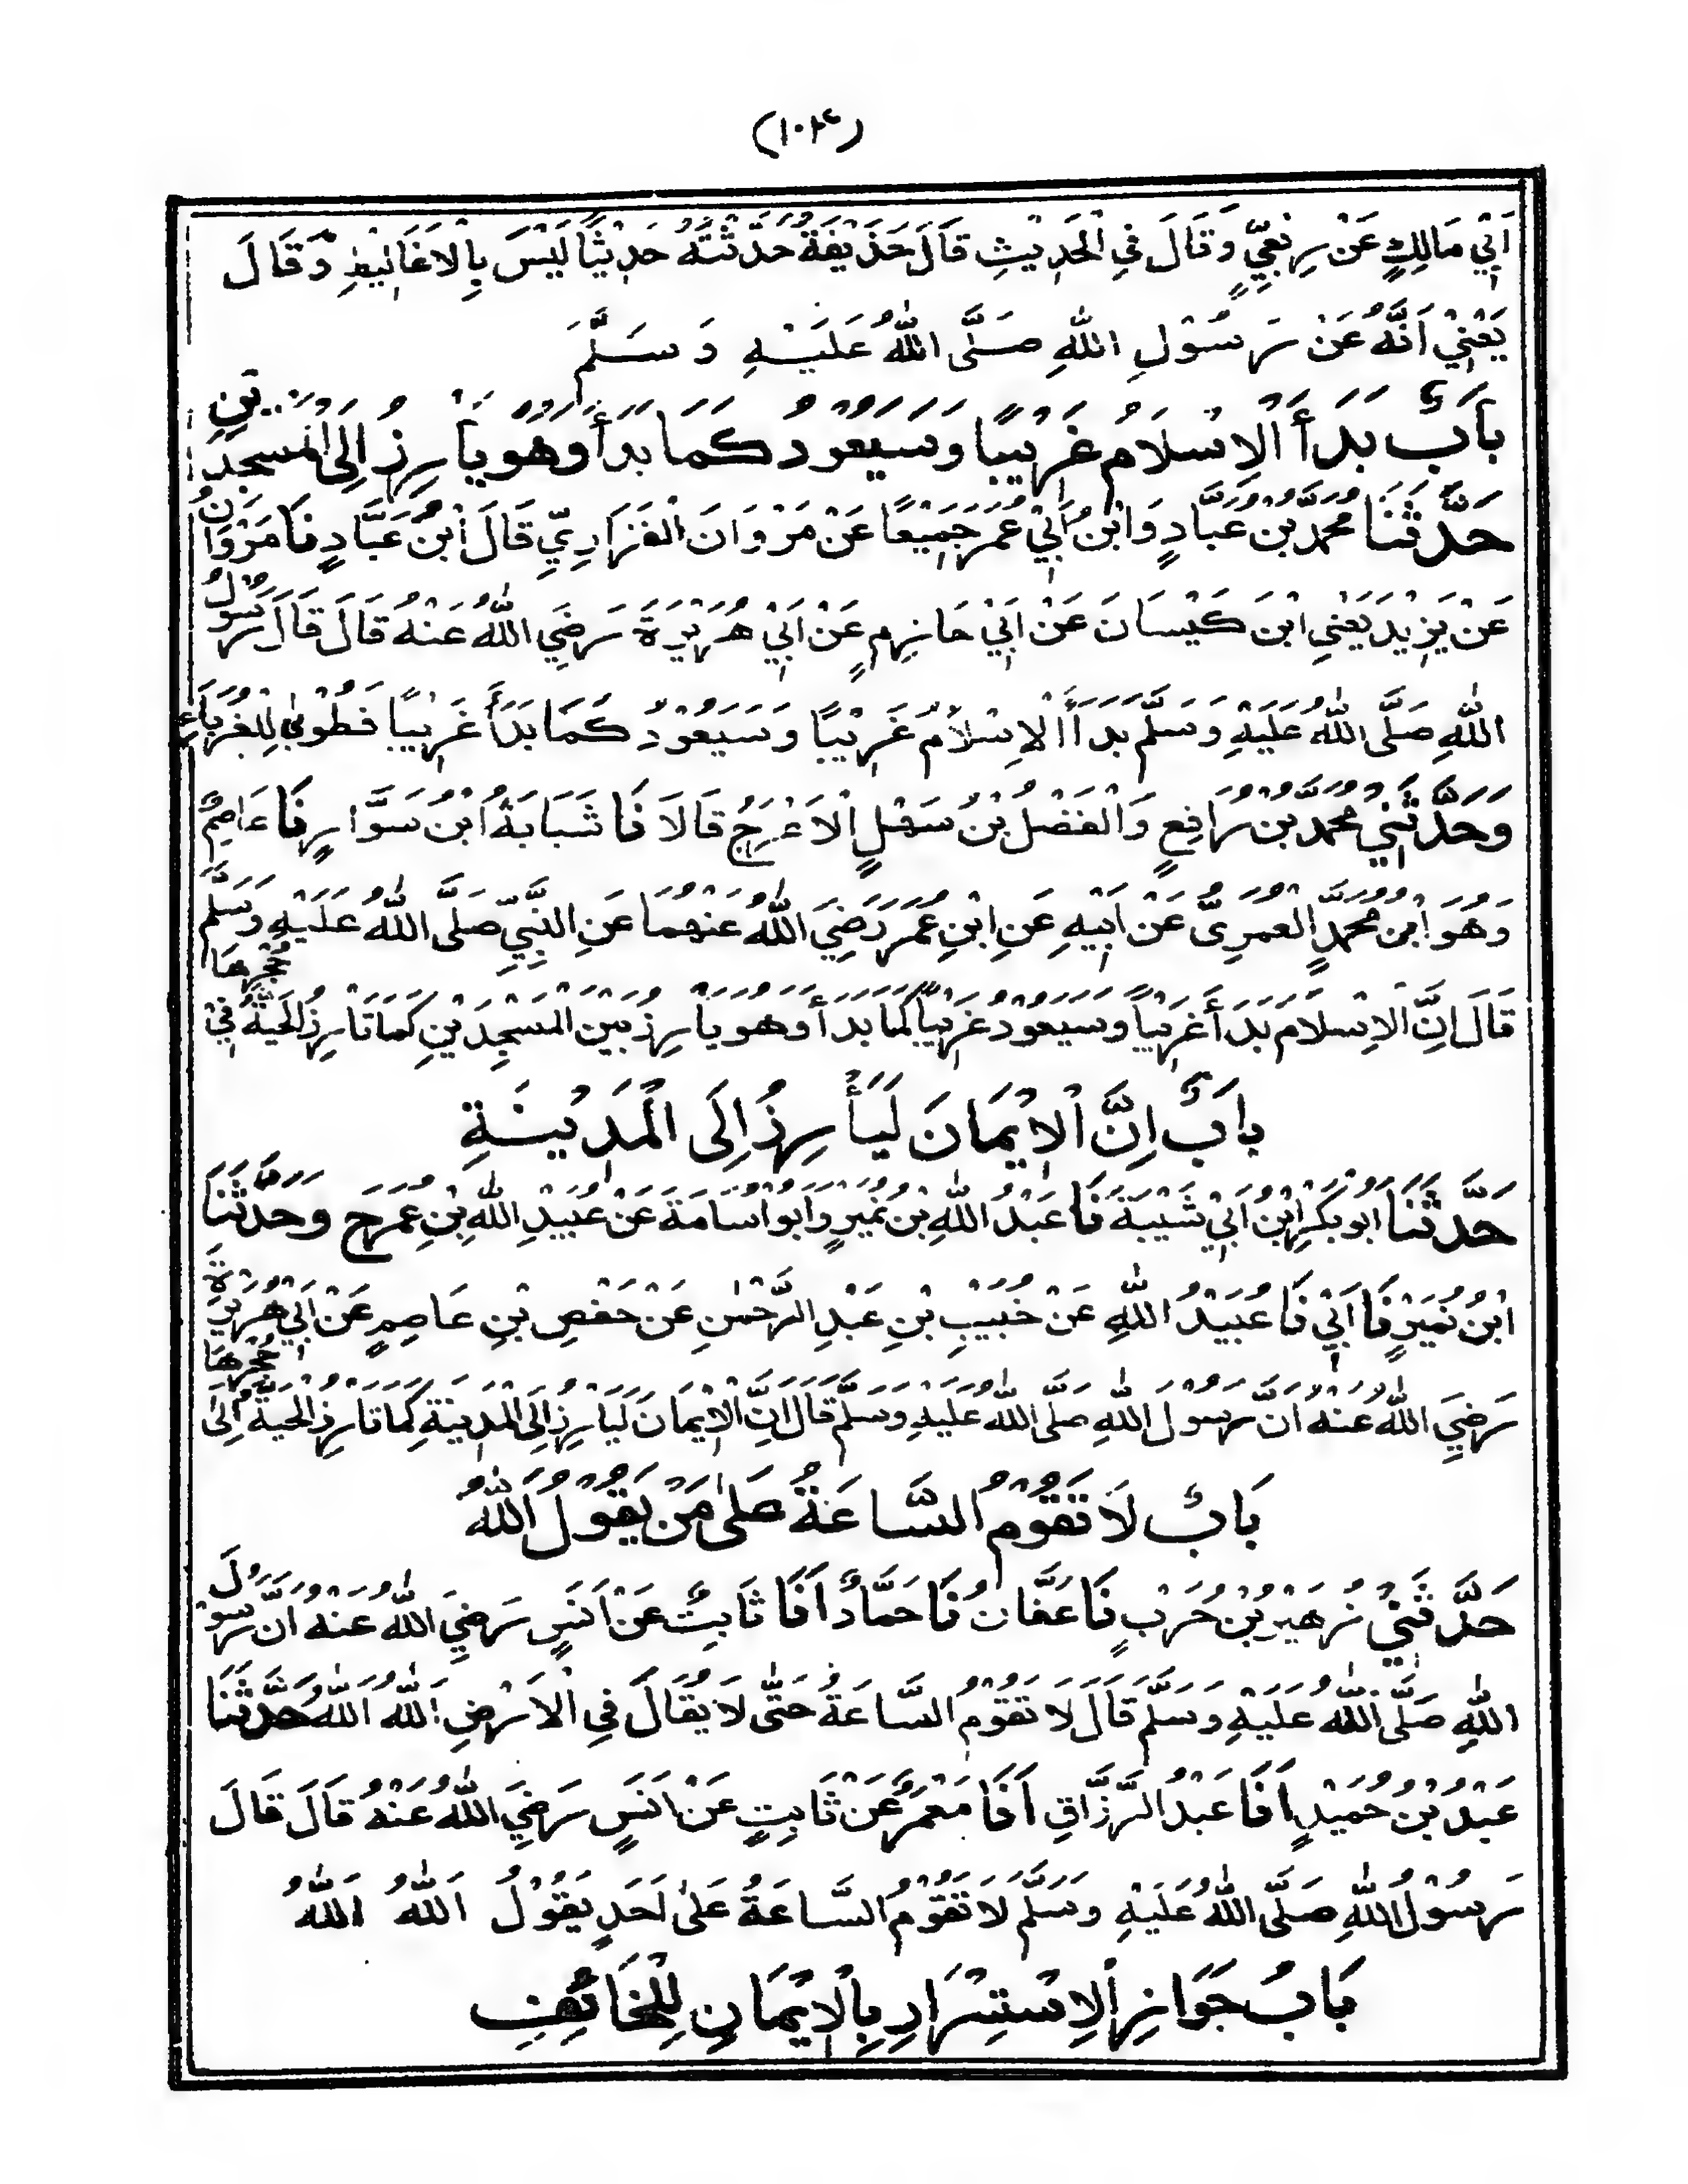 (١٠٢٤)
اَبِيْ مَالِكٍ عَنْ رِبْعِيٍّ وَقَالَ فِي الْحَدِيْثِ قَالَ حُذَيْفَةُ حَدَّثْتُهُ حَدِيْثًا لَيْسَ بِالْاَغَالِيْطِ وَقَالَ
يَعْنِيْ اَنَّهُ عَنْ رَسُوْلِ اللّٰهِ صَلَّى اللّٰهُ عَلَيْهِ وَسَلَّمَ
بَابٌ بَدَأَ الْاِسْلَامُ غَرِيْبًا وَسَيَعُوْدُ كَمَا بَدَأَ وَهُوَ يَأْرِزُ اِلَى الْمَسْجِدَيْنِ
حَدَّثَنَا مُحَمَّدُ بْنُ عَبَّادٍ وَابْنُ اَبِيْ عُمَرَ جَمِيْعًا عَنْ مَرْوَانَ الْفَزَارِيِّ قَالَ ابْنُ عَبَّادٍ نَا مَرْوَانُ
عَنْ يَزِيْدَ يَعْنِي ابْنَ كَيْسَانَ عَنْ اَبِيْ حَازِمٍ عَنْ اَبِيْ هُرَيْرَةَ رَضِيَ اللّٰهُ عَنْهُ قَالَ قَالَ رَسُوْلُ
اللّٰهِ صَلَّى اللّٰهُ عَلَيْهِ وَسَلَّمَ بَدَأَ الْاِسْلَامُ غَرِيْبًا وَسَيَعُوْدُ كَمَا بَدَأَ غَرِيْبًا فَطُوْبٰى لِلْغُرَبَاءِ
وَحَدَّثَنِيْ مُحَمَّدُ بْنُ رَافِعٍ وَالْفَضْلُ بْنُ سَهْلٍ الْاَعْرَجُ قَالَا نَا شَبَابَةُ ابْنُ سَوَّارٍ نَا عَاصِمٌ
وَهُوَ ابْنُ مُحَمَّدٍ الْعُمَرِيُّ عَنْ اَبِيْهِ عَنِ ابْنِ عُمَرَ رَضِيَ اللّٰهُ عَنْهُمَا عَنِ النَّبِيِّ صَلَّى اللّٰهُ عَلَيْهِ وَسَلَّمَ
قَالَ اِنَّ الْاِسْلَامَ بَدَأَ غَرِيْبًا وَسَيَعُوْدُ غَرِيْبًا كَمَا بَدَأَ وَهُوَ يَأْرِزُ بَيْنَ الْمَسْجِدَيْنِ كَمَا تَأْرِزُ الْحَيَّةُ فِيْ جُحْرِهَا
بَابٌ اِنَّ الْاِيْمَانَ لَيَأْرِزُ اِلَى الْمَدِيْنَةِ
حَدَّثَنَا اَبُوْ بَكْرِ ابْنُ اَبِيْ شَيْبَةَ نَا عَبْدُ اللّٰهِ بْنُ نُمَيْرٍ وَاَبُوْ اُسَامَةَ عَنْ عُبَيْدِ اللّٰهِ بْنِ عُمَرَ ح وَحَدَّثَنَا
ابْنُ نُمَيْرٍ نَا اَبِيْ نَا عُبَيْدُ اللّٰهِ عَنْ خُبَيْبِ بْنِ عَبْدِ الرَّحْمٰنِ عَنْ حَفْصِ بْنِ عَاصِمٍ عَنْ اَبِيْ هُرَيْرَةَ
رَضِيَ اللّٰهُ عَنْهُ اَنَّ رَسُوْلَ اللّٰهِ صَلَّى اللّٰهُ عَلَيْهِ وَسَلَّمَ قَالَ اِنَّ الْاِيْمَانَ لَيَأْرِزُ اِلَى الْمَدِيْنَةِ كَمَا تَأْرِزُ الْحَيَّةُ اِلٰى جُحْرِهَا
بَابٌ لَا تَقُوْمُ السَّاعَةُ عَلٰى مَنْ يَقُوْلُ اَللّٰهُ
حَدَّثَنِيْ زُهَيْرُ بْنُ حَرْبٍ نَا عَفَّانُ نَا حَمَّادٌ اَنَا ثَابِتٌ عَنْ اَنَسٍ رَضِيَ اللّٰهُ عَنْهُ اَنَّ رَسُوْلَ
اللّٰهِ صَلَّى اللّٰهُ عَلَيْهِ وَسَلَّمَ قَالَ لَا تَقُوْمُ السَّاعَةُ حَتّٰى لَا يُقَالَ فِي الْاَرْضِ اَللّٰهُ اَللّٰهُ حَدَّثَنَا
عَبْدُ بْنُ حُمَيْدٍ اَنَا عَبْدُ الرَّزَّاقِ اَنَا مَعْمَرٌ عَنْ ثَابِتٍ عَنْ اَنَسٍ رَضِيَ اللّٰهُ عَنْهُ قَالَ قَالَ
رَسُوْلُ اللّٰهِ صَلَّى اللّٰهُ عَلَيْهِ وَسَلَّمَ لَا تَقُوْمُ السَّاعَةُ عَلٰى اَحَدٍ يَقُوْلُ اَللّٰهُ اَللّٰهُ
بَابُ جَوَازِ الْاِسْتِسْرَارِ بِالْاِيْمَانِ لِلْخَائِفِ